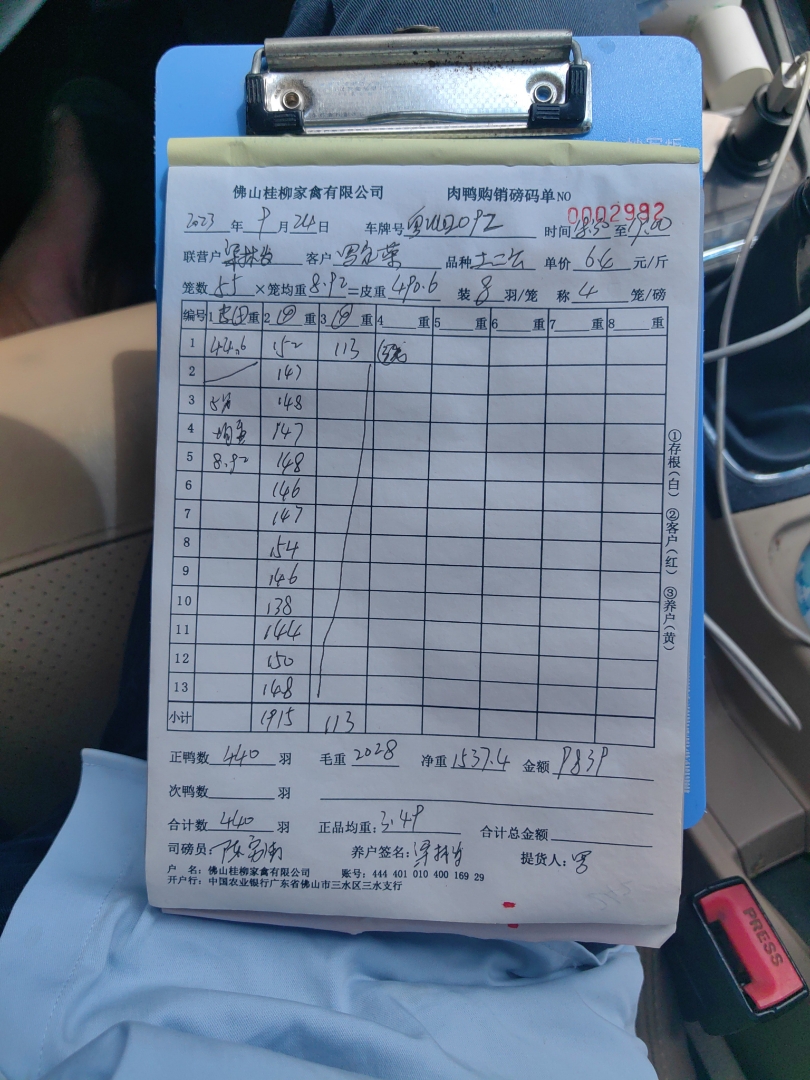 佛山桂柳家禽有限公司 肉鸭购销磅码单NO 0002992
2023年9月24日 车牌号 时间18:30至19:00
联营户 客户 品种 单价6.4元/斤
笼数55×笼均重8.92=皮重490.6 装8羽/笼 称4笼/磅
编号 1 重 2 重 3 重 4 重 5 重 6 重 7 重 8 重
1 44.6 152 113
2 147
3 5只 148
4 均重 147
5 8.92 148
6 146
7 147
8 154
9 146
10 138
11 144
12 150
13 148
小计 1915 113
正鸭数440羽 毛重2028 净重1537.4 金额9839
次鸭数 羽
合计数440羽 正品均重:3.49 合计总金额
司磅员: 养户签名: 提货人:
户 名:佛山桂柳家禽有限公司 账号:444 401 010 400 169 29
开户行:中国农业银行广东省佛山市三水区三水支行
①存根(白) ②客户(红) ③养户(黄)
PRESS